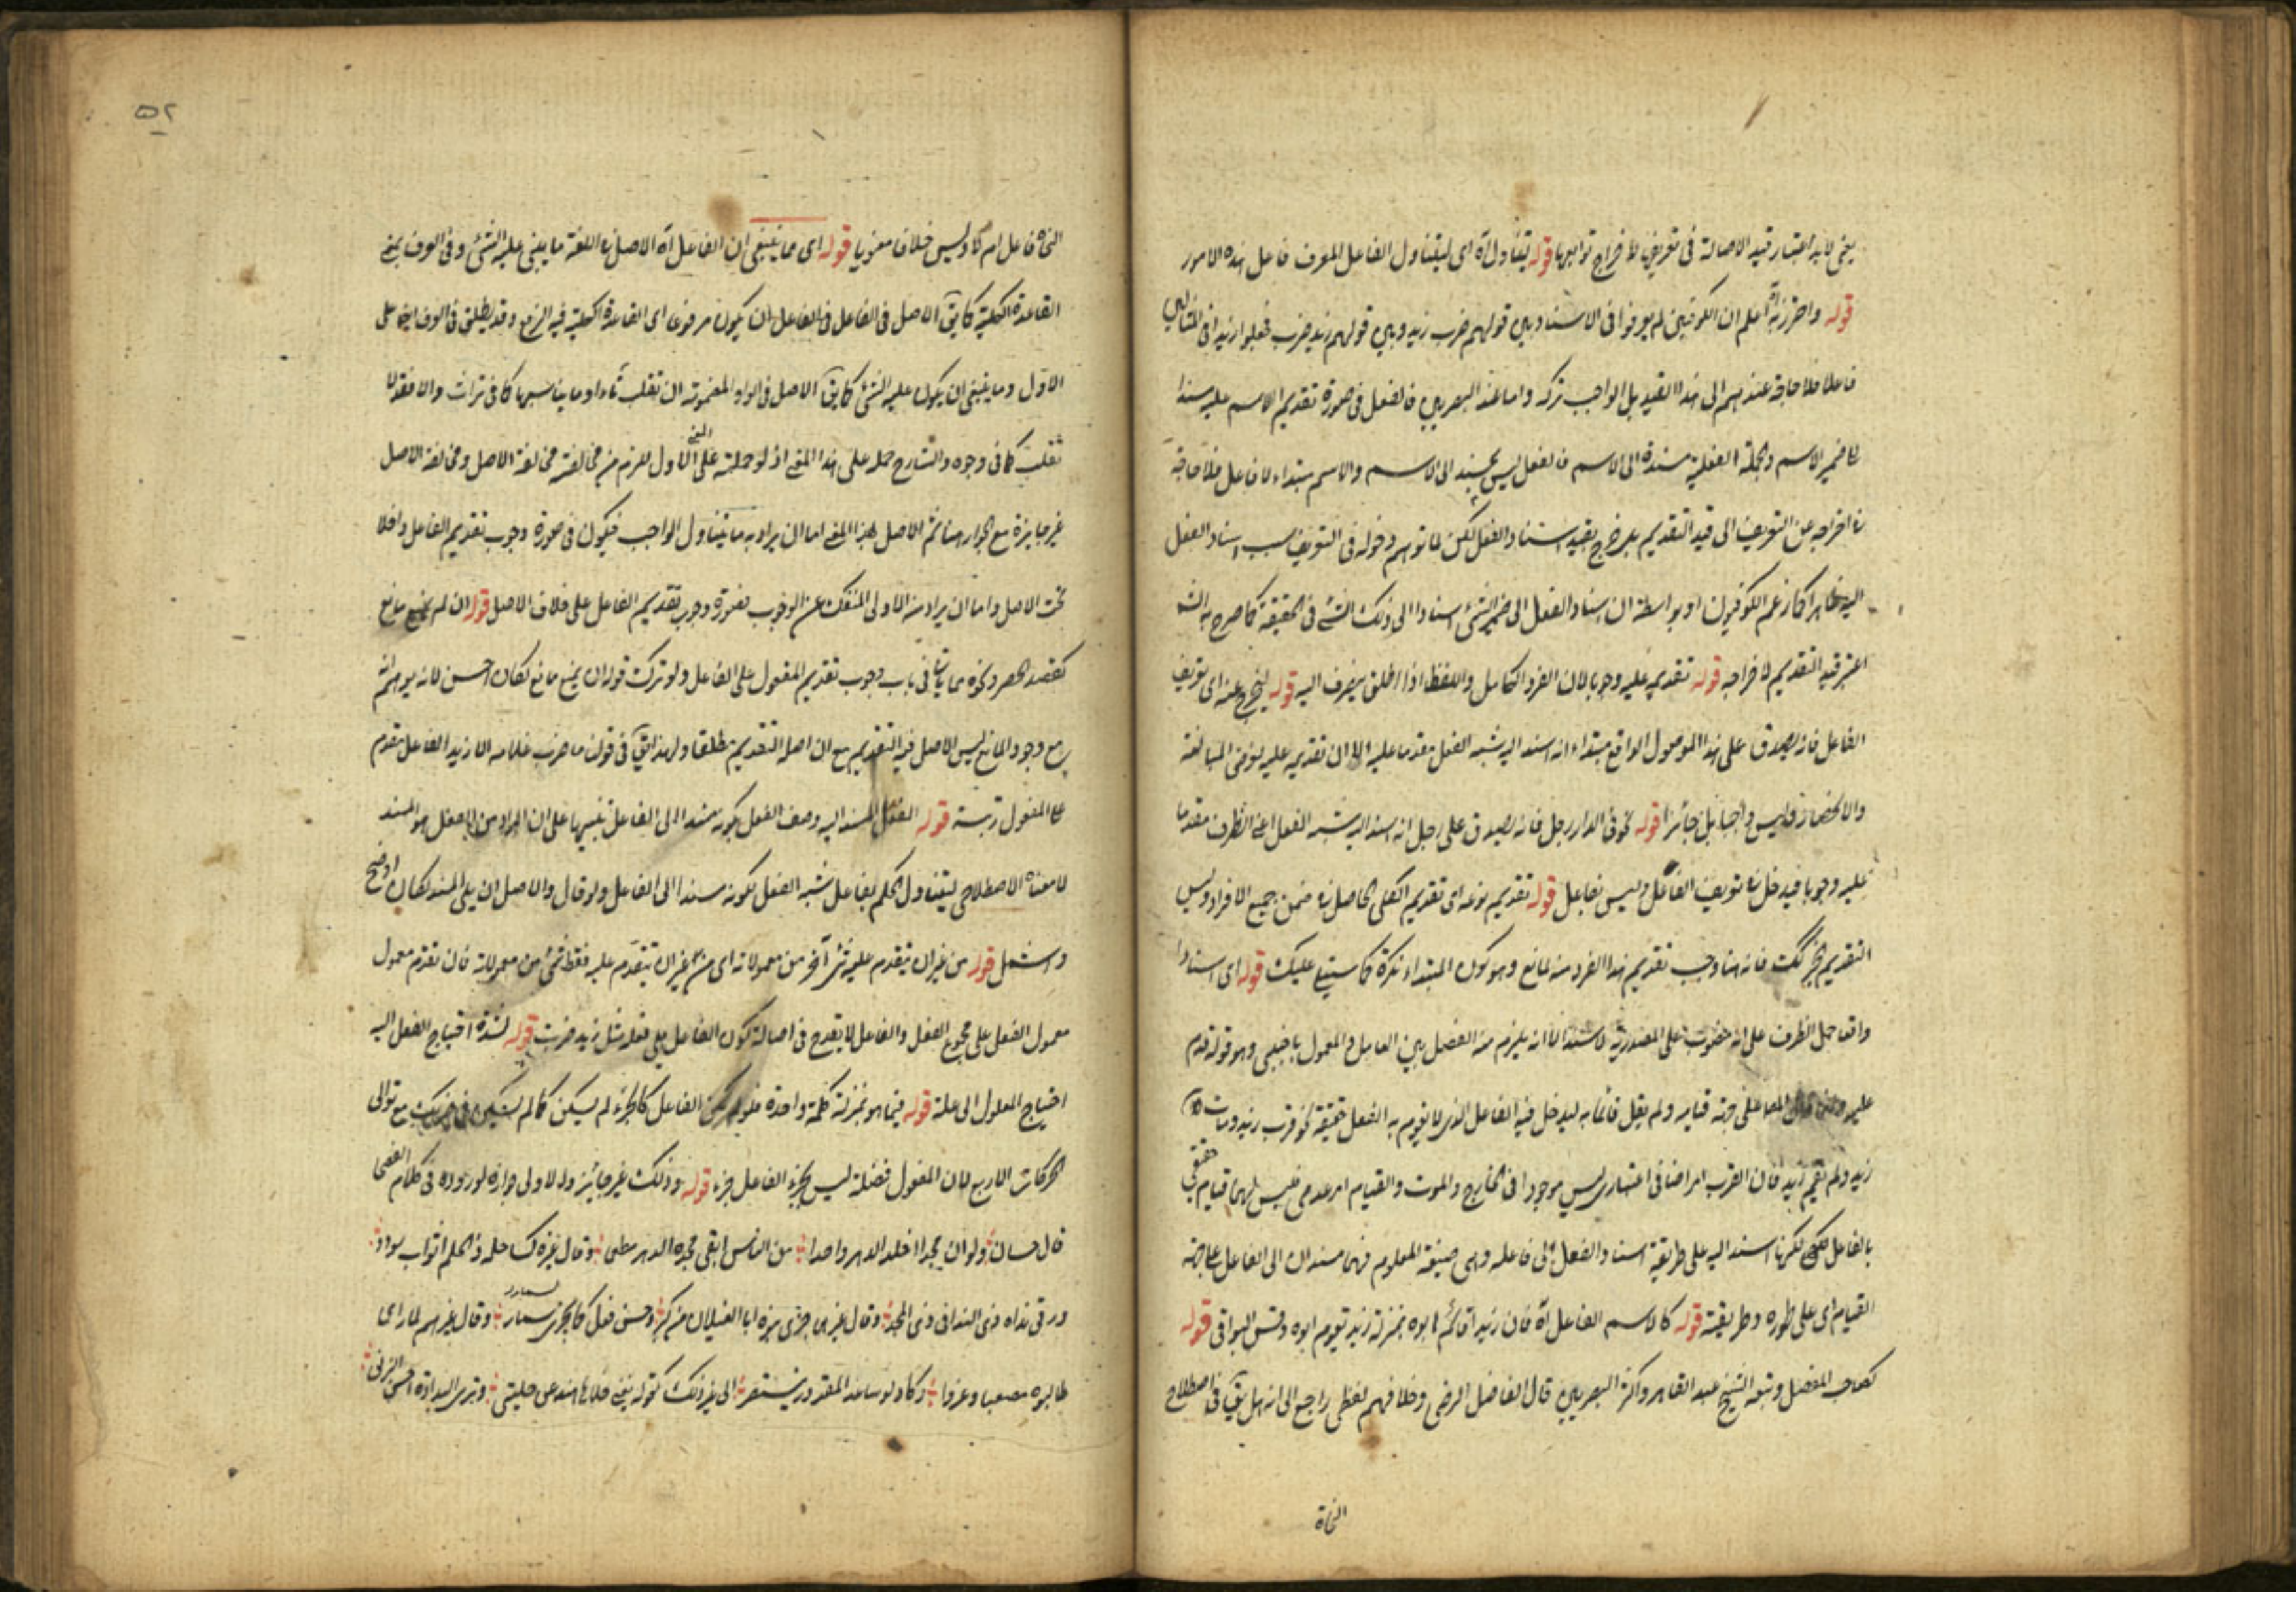 يعنى لا بد اعتبار قيد الاصالة فى تعريفها لاخراج توابعها قوله يتناول اه اى ليتناول الفاعل المعرف فاعل هذه الامور
قوله واحترز به اه اعلم ان الكوفيين لم يفرقوا فى الاسناد بين قولهم ضرب زيد وبين قولهم زيد ضرب فجعلوا زيدا فى المثالين
فاعلا فلا حاجة عندهم الى هذا القيد بل الواجب تركه واما عند البصريين فالفعل فى صورة تقديم الاسم عليه مسند
الى ضمير الاسم والجملة الفعلية مسندة الى الاسم فالفعل ليس بمسند الى الاسم والاسم مبتداء لا فاعل فلا حاجة
فى اخراجه عن التعريف الى قيد التقديم بل خرج بقيد اسناد الفعل لكن لما توهم دخوله فى التعريف بسبب اسناد الفعل
اليه ظاهرا كما زعم الكوفيون او بواسطة ان اسناد الفعل الى ضمير الشئ اسناد الى ذلك الشئ فى الحقيقة كما صرح به الشـ
اعتبر قيد التقديم لاخراجه قوله تقديمه عليه وجوبا لان الفرد الكامل واللفظ اذا اطلق ينصرف اليه قوله ليخرج عنه اى تعريف
الفاعل فانه يصدق على هذا الموصول الواقع مبتداء انه اسند اليه شبه الفعل مقدما عليه الا ان تقديمه عليه لغرض المبالغة
والانحصار وليس واجبا بل جائزا قوله نحو فى الدار رجل فانه يصدق على رجل انه اسند اليه شبه الفعل اعنى الظرف مقدما
عليه وجوبا فيدخل فى تعريف الفاعل وليس بفاعل قوله تقديم نوعه اى تقديم الكلى الحاصل فى ضمن جميع الافراد وليس
التقديم الخبر كك فانه هنا وجب تقديم هذا الفرد منه لمانع وهو كون المبتداء نكرة كما سيتلى عليك قوله اى اسنادا
واقعا حمل الظرف على انه منصوب على المصدرية لاسند الا انه يلزم منه الفصل بين العامل والمعمول باجنبى وهو قوله قدم
عليه الفاعل جهة قيامه ولم يقل قائما به ليدخل فيه الفاعل الذى لا يقوم به الفعل حقيقة نحو قرب زيد ومات
زيد ولم يقم زيد فان القرب امر اضافى اعتبارى ليس موجودا فى الخارج والموت والقيام امر عدمى فليس لهما قيام حقيقى
بالفاعل لكنها اسند اليه على طريقة اسناد الفعل الى فاعله وهى صيغة المعلوم فهما مسندان الى الفاعل على جهة
القيام اى على طوره وطريقته قوله كالاسم الفاعل اه فان زيد اقائم ابوه بمنزلة زيد يقوم ابوه وقس البواقى قوله
كصاحب المفصل وتبعه الشيخ عبد القاهر واكثر البصريين قال الفاضل الرضى وخلافهم لفظى راجع الى انه هل يقال فى اصطلاح
النحاة
٥٢
النحاة فاعل ام لا وليس خلافا معنويا قوله اى ما ينبغى ان الفاعل اه الاصل فى اللغة ما يبنى عليه الشئ وفى العرف بمعنى
القاعدة الكلية كما يق الاصل فى الفاعل ان يكون مرفوعا اى القاعدة الكلية فيه الرفع وقد يطلق فى العرف ايضا على
الاول وما ينبغى ان يكون عليه الشئ كما يق الاصل فى الواو المضمومة ان تقلب تاء او ما يناسبها كما فى تراث والا فقد لا
تقلب كما فى وجوه والشارح حمله على هذا المعنى اذ لو حملته على المعنى الاول للزم من مخالفته مخالفة الاصل ومخالفة الاصل
غير جايزة مع الجواز هنا ثم الاصل بهذا المعنى اما ان يراد به ما يتناول الواجب فيكون فى صورة وجوب تقديم الفاعل داخلا
تحت الاصل واما ان يراد منه الاولى المنفك عن الوجوب فصورة وجوب تقديم الفاعل على خلاف الاصل قوله ان لم يمنع مانع
كقصد الحصر ونحوه مما ياتى فى باب وجوب تقديم المفعول على الفاعل ولو ترك قوله ان يمنع مانع لكان احسن لانه يوهم انه
مع وجود المانع ليس الاصل فيه التقديم مع ان اصله التقديم مطلقا ولهذا يق فى قولنا ما ضرب غلامه الا زيد الفاعل مقدم
على المفعول رتبة قوله الفعل المسند اليه وصف الفعل بكونه مسندا الى الفاعل تنبيها على ان المراد من الفعل هو المسند
لا معناه الاصطلاحى ليتناول الحكم بفاعل شبه الفعل لكونه مسندا الى الفاعل ولو قال والاصل ان يلى المسند لكان اوضح
واشمل قوله من غير ان يتقدم عليه شئ آخر من معمولاته اى من غير ان يتقدم عليه فقط شئ من معمولاته فان تقدم معمول
معمول الفعل على مجموع الفعل والفاعل لا يقدح فى اصالة كون الفاعل يلى فعله مثل زيد ضربت قوله لشدة احتياج الفعل اليه
احتياج المعلول الى علة قوله فيما هو بمنزلة كلمة واحدة فلو لم يكن الفاعل كالجزء لم يسكن كما لم يسكن فى ضربك مع توالى
الحركات الاربع لان المفعول فضلة ليس بجزء الفاعل جزء قوله وذلك غير جائز والاولى جوازه لوروده فى كلام الفصحا
قال حسان ولو ان مجدا اخلد الدهر واحدا من الناس ابقى مجده الدهر مطعما وقال غيره كسا حلمه ذا الحلم اثواب سودد
ورقى نداه ذى الندا فى ذرى المجد وقال غيرهما جزى بنوه ابا الغيلان عن كبر وحسن فعل كما يجزى سنمار وقال غيرهم لما راى
طالبوه مصعبا وعزوا وكاد لو ساعد المقدور ينتصر الى غير ذلك كقوله